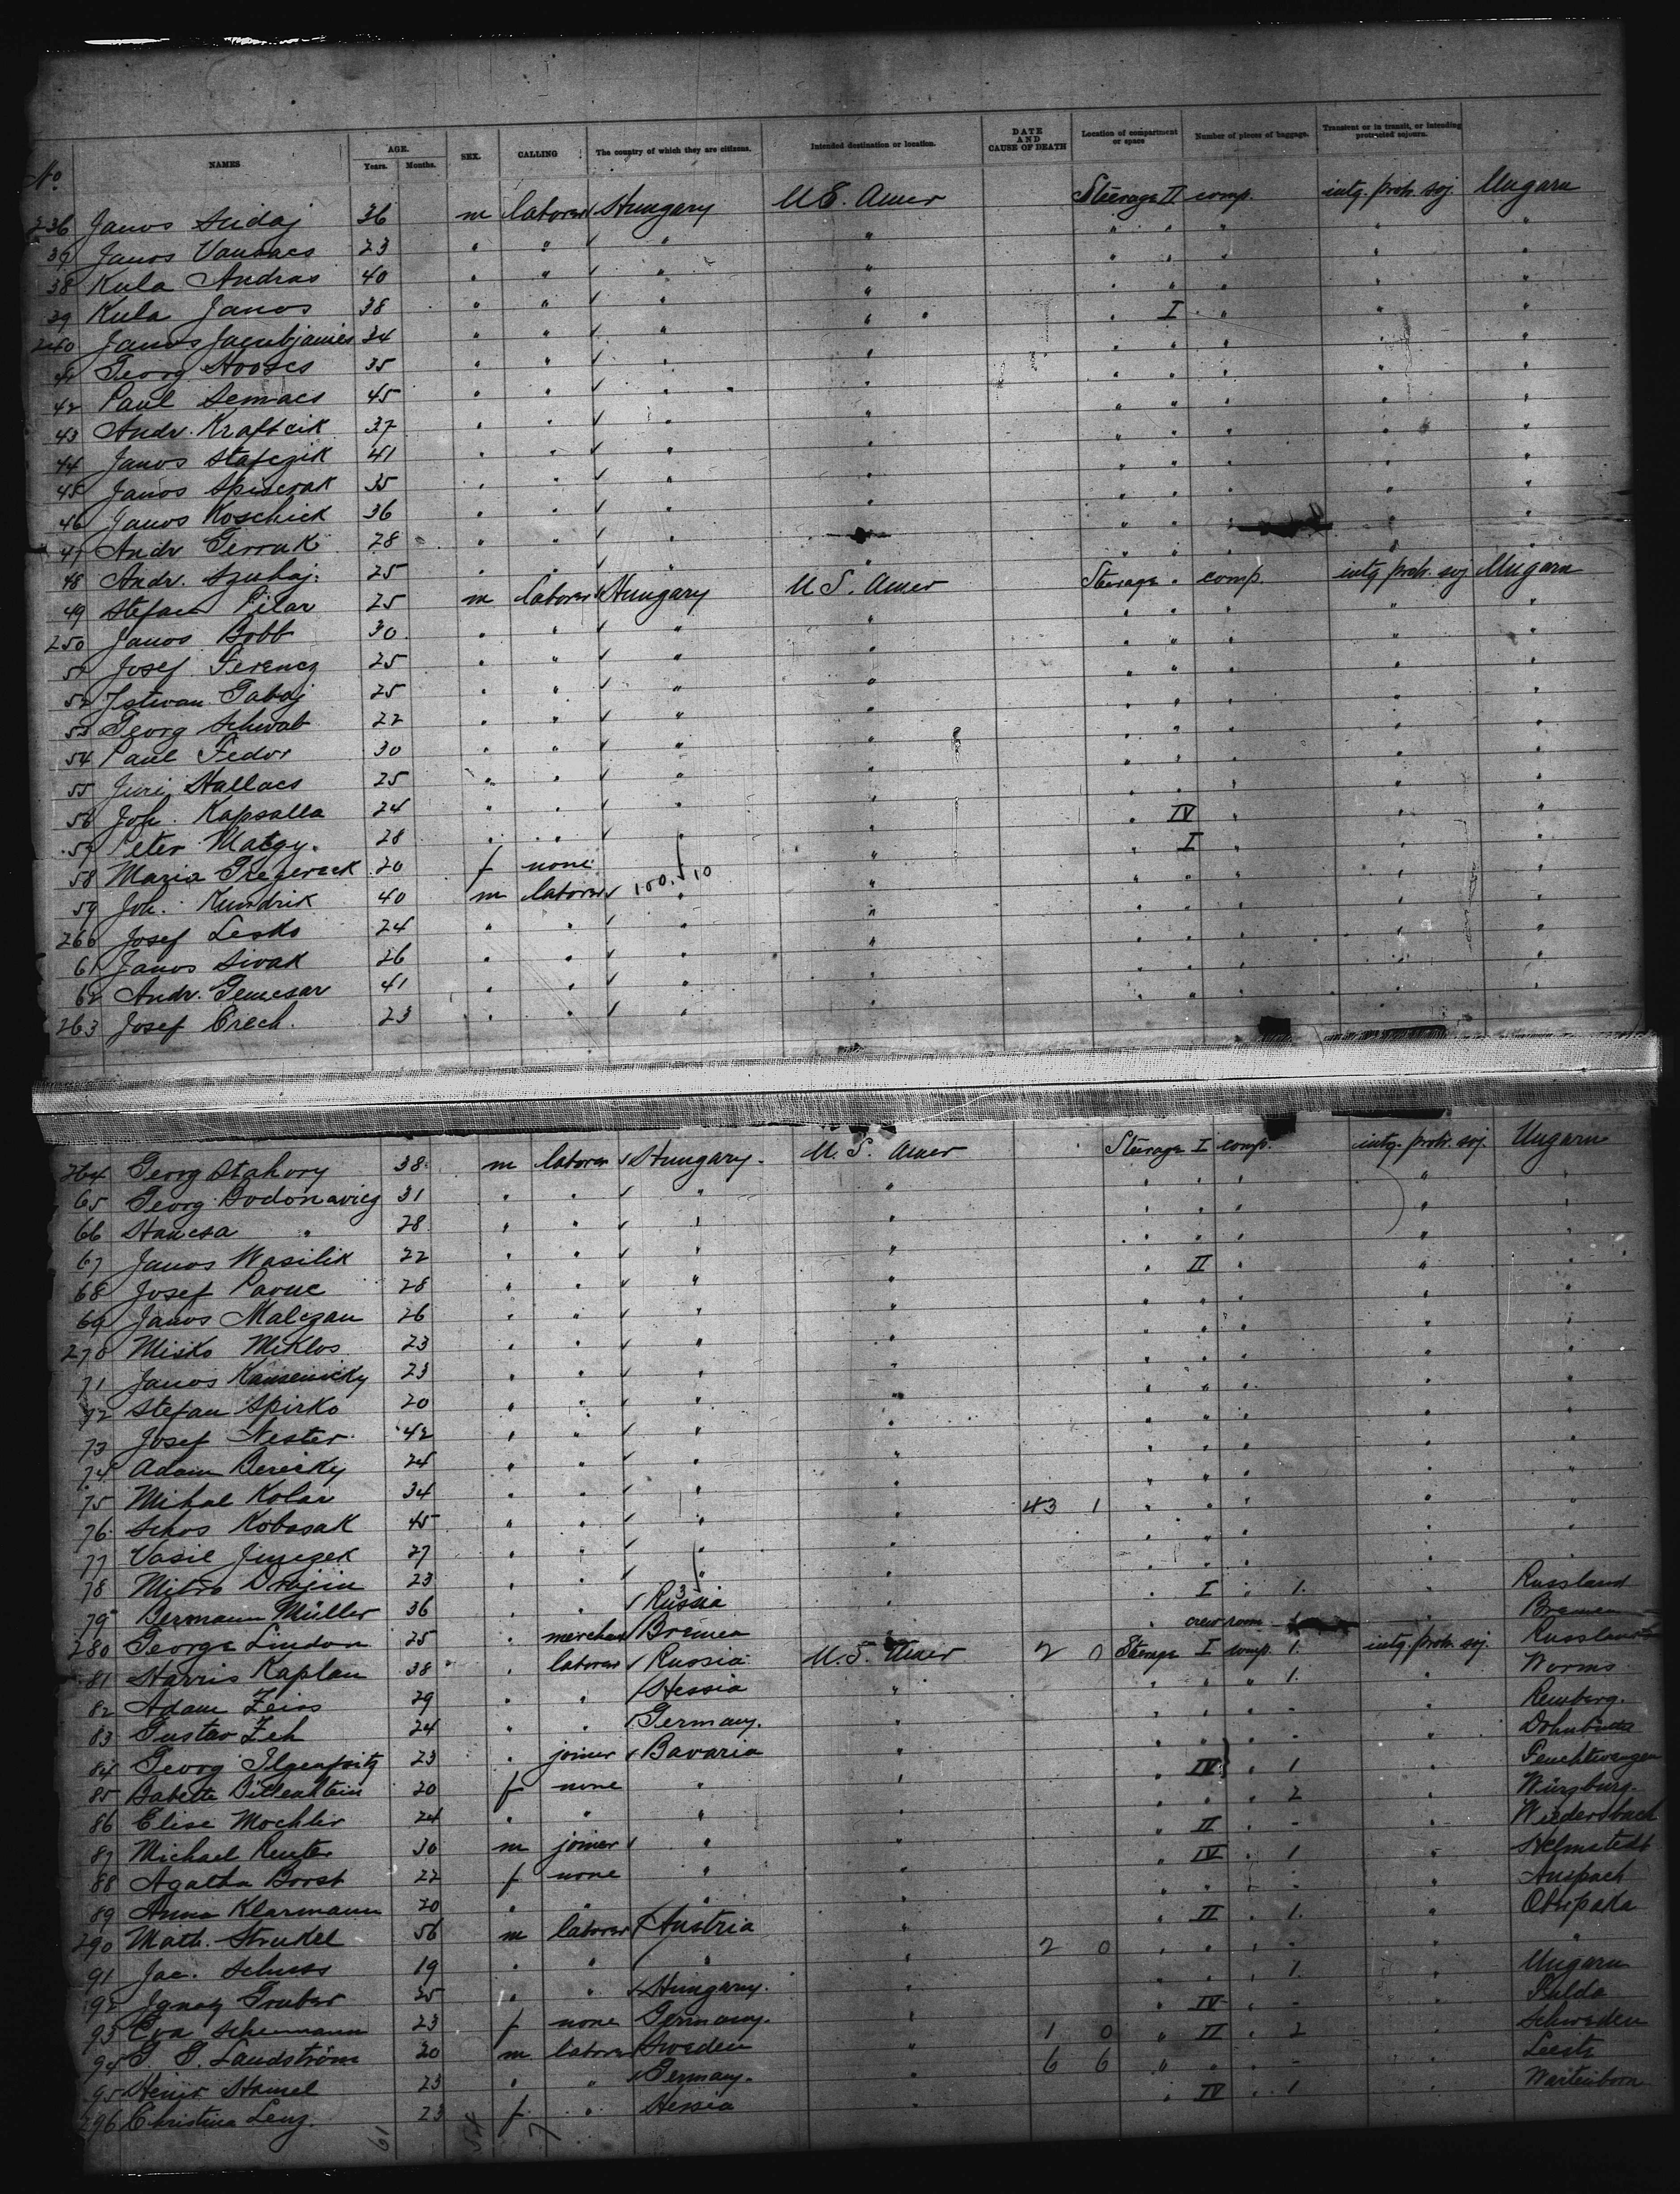 No NAMES AGE. Years. Months. SEX. CALLING The country of which they are citizens. Intended destination or location. DATE AND CAUSE OF DEATH Location of compartment or space Number of pieces of baggage. Transient or in transit, or intending protracted sojourn.
236 Janos 36 m laborer Hungary U S. Amer Steerage II comp. intg. protr. soj. Ungarn
37 Janos 23 " " " " " " " " "
38 Kula Andras 40 " " " " " " " " "
39 Kula Janos 38 " " " " " I " " "
240 Janos 34 " " " " " " " " "
41 Georg 35 " " " " " " " " "
42 Paul Semacs 45 " " " " " " " " "
43 Andr. Kraftcik 37 " " " " " " " " "
44 Janos 41 " " " " " " " " "
45 Janos Spiserak 35 " " " " " " " " "
46 Janos Koschick 36 " " " " " " " " "
47 Andr 28 " " " " " " " " "
48 Andr. Szuhaj. 25 " " " " " " " " "
49 Stefan Pilar 25 m laborer Hungary U S. Amer Steerage " comp. intg protr. soj Ungarn
250 Janos Bobb 30 " " " " " " " " "
51 Josef Ferencz 25 " " " " " " " " "
52 Istvan Gabaj 25 " " " " " " " " "
53 Georg Schwab 22 " " " " " " " " "
54 Paul Fedor 30 " " " " " " " " "
55 Juri Hallacs 25 " " " " " " " " "
56 Joh. Kapsalla 24 " " " " " IV " " "
57 Peter Matgy. 28 " " " " " I " " "
58 Maria 20 f none " " " " " "
59 Joh. Kundrik 40 m laborer 100.10 " " " " " "
260 Josef Lesko 24 " " " " " " " " "
61 Janos Sivak 26 " " " " " " " " "
62 Andr. Gemesar 41 " " " " " " " " "
263 Josef Crech. 23 " " " " " " " " "
264 Georg Stahory 38 m laborer Hungary. U. S. Amer Steerage I comp. intg. protr. soj. Ungarn
65 Georg Bodonavicz 31 " " " " " " " " "
66 " 28 " " " " " " " " "
67 Janos Wasilik 22 " " " " " II " " "
68 Josef Pavuc 28 " " " " " " " " "
69 Janos Malczan 26 " " " " " " " " "
270 Misko Miklos 23 " " " " " " " " "
71 Janos Kamenicky 23 " " " " " " " " "
72 Stefan Spirko 20 " " " " " " " " "
73 Josef Nester 42 " " " " " " " " "
74 Adam Derecky 24 " " " " " " " " "
75 Mihal Kolar 34 " " " " 43 1 " " " " "
76 Kobasak 45 " " " " " " " " "
77 Vasil 27 " " " " " " " " "
78 Mitro 23 " " " " " I " 1. " Russland
79 Hermann Müller 36 " " Russia " " crew room " Bremen
280 George Lindon 25 " merchant Bremen U. S. Amer 2 0 Steerage I comp. 1. intg. protr. soj. Russland
81 Harris Kaplan 38 " laborer Russia " " " " 1. " Worms
82 Adam Zeiss 29 " " Hessia " " " " " Remberg.
83 Gustav Zeh 24 " " Germany. " " " " "
84 Georg Ilgenfritz 23 " joiner Bavaria " " IV " 1 " Feuchtwangen
85 Babette Dillenstein 20 f none " " " " " 2 " Würzburg.
86 Elise Mochler 24 " " " " " II " " " Wiedersbach
87 Michael Reuter 30 m joiner " " " IV " 1 " Helmstedt
88 Agatha Borst 22 f none " " " " " " Anspach
89 Anna Klarmann 20 " " " " " II " 1. "
290 Math. Strukel 56 m laborer Austria " 2 0 " " " " "
91 Jac. Schuss 19 " " " " " " " 1. " Ungarn
92 Ignatz Gruber 25 " " Hungary. " " IV " " " Fulda
93 Eva Schermann 23 f none Germany. " 1 0 " II " 2 " Schweden
94 G. G. Landström 20 m laborer Sweden " 6 6 " " " " " Leeste
95 Heinr. Hamel 23 " " Germany. " " IV " 1 " Wartenborn
296 Christina Lenz. 23 f. " Hessia "
61 54 7